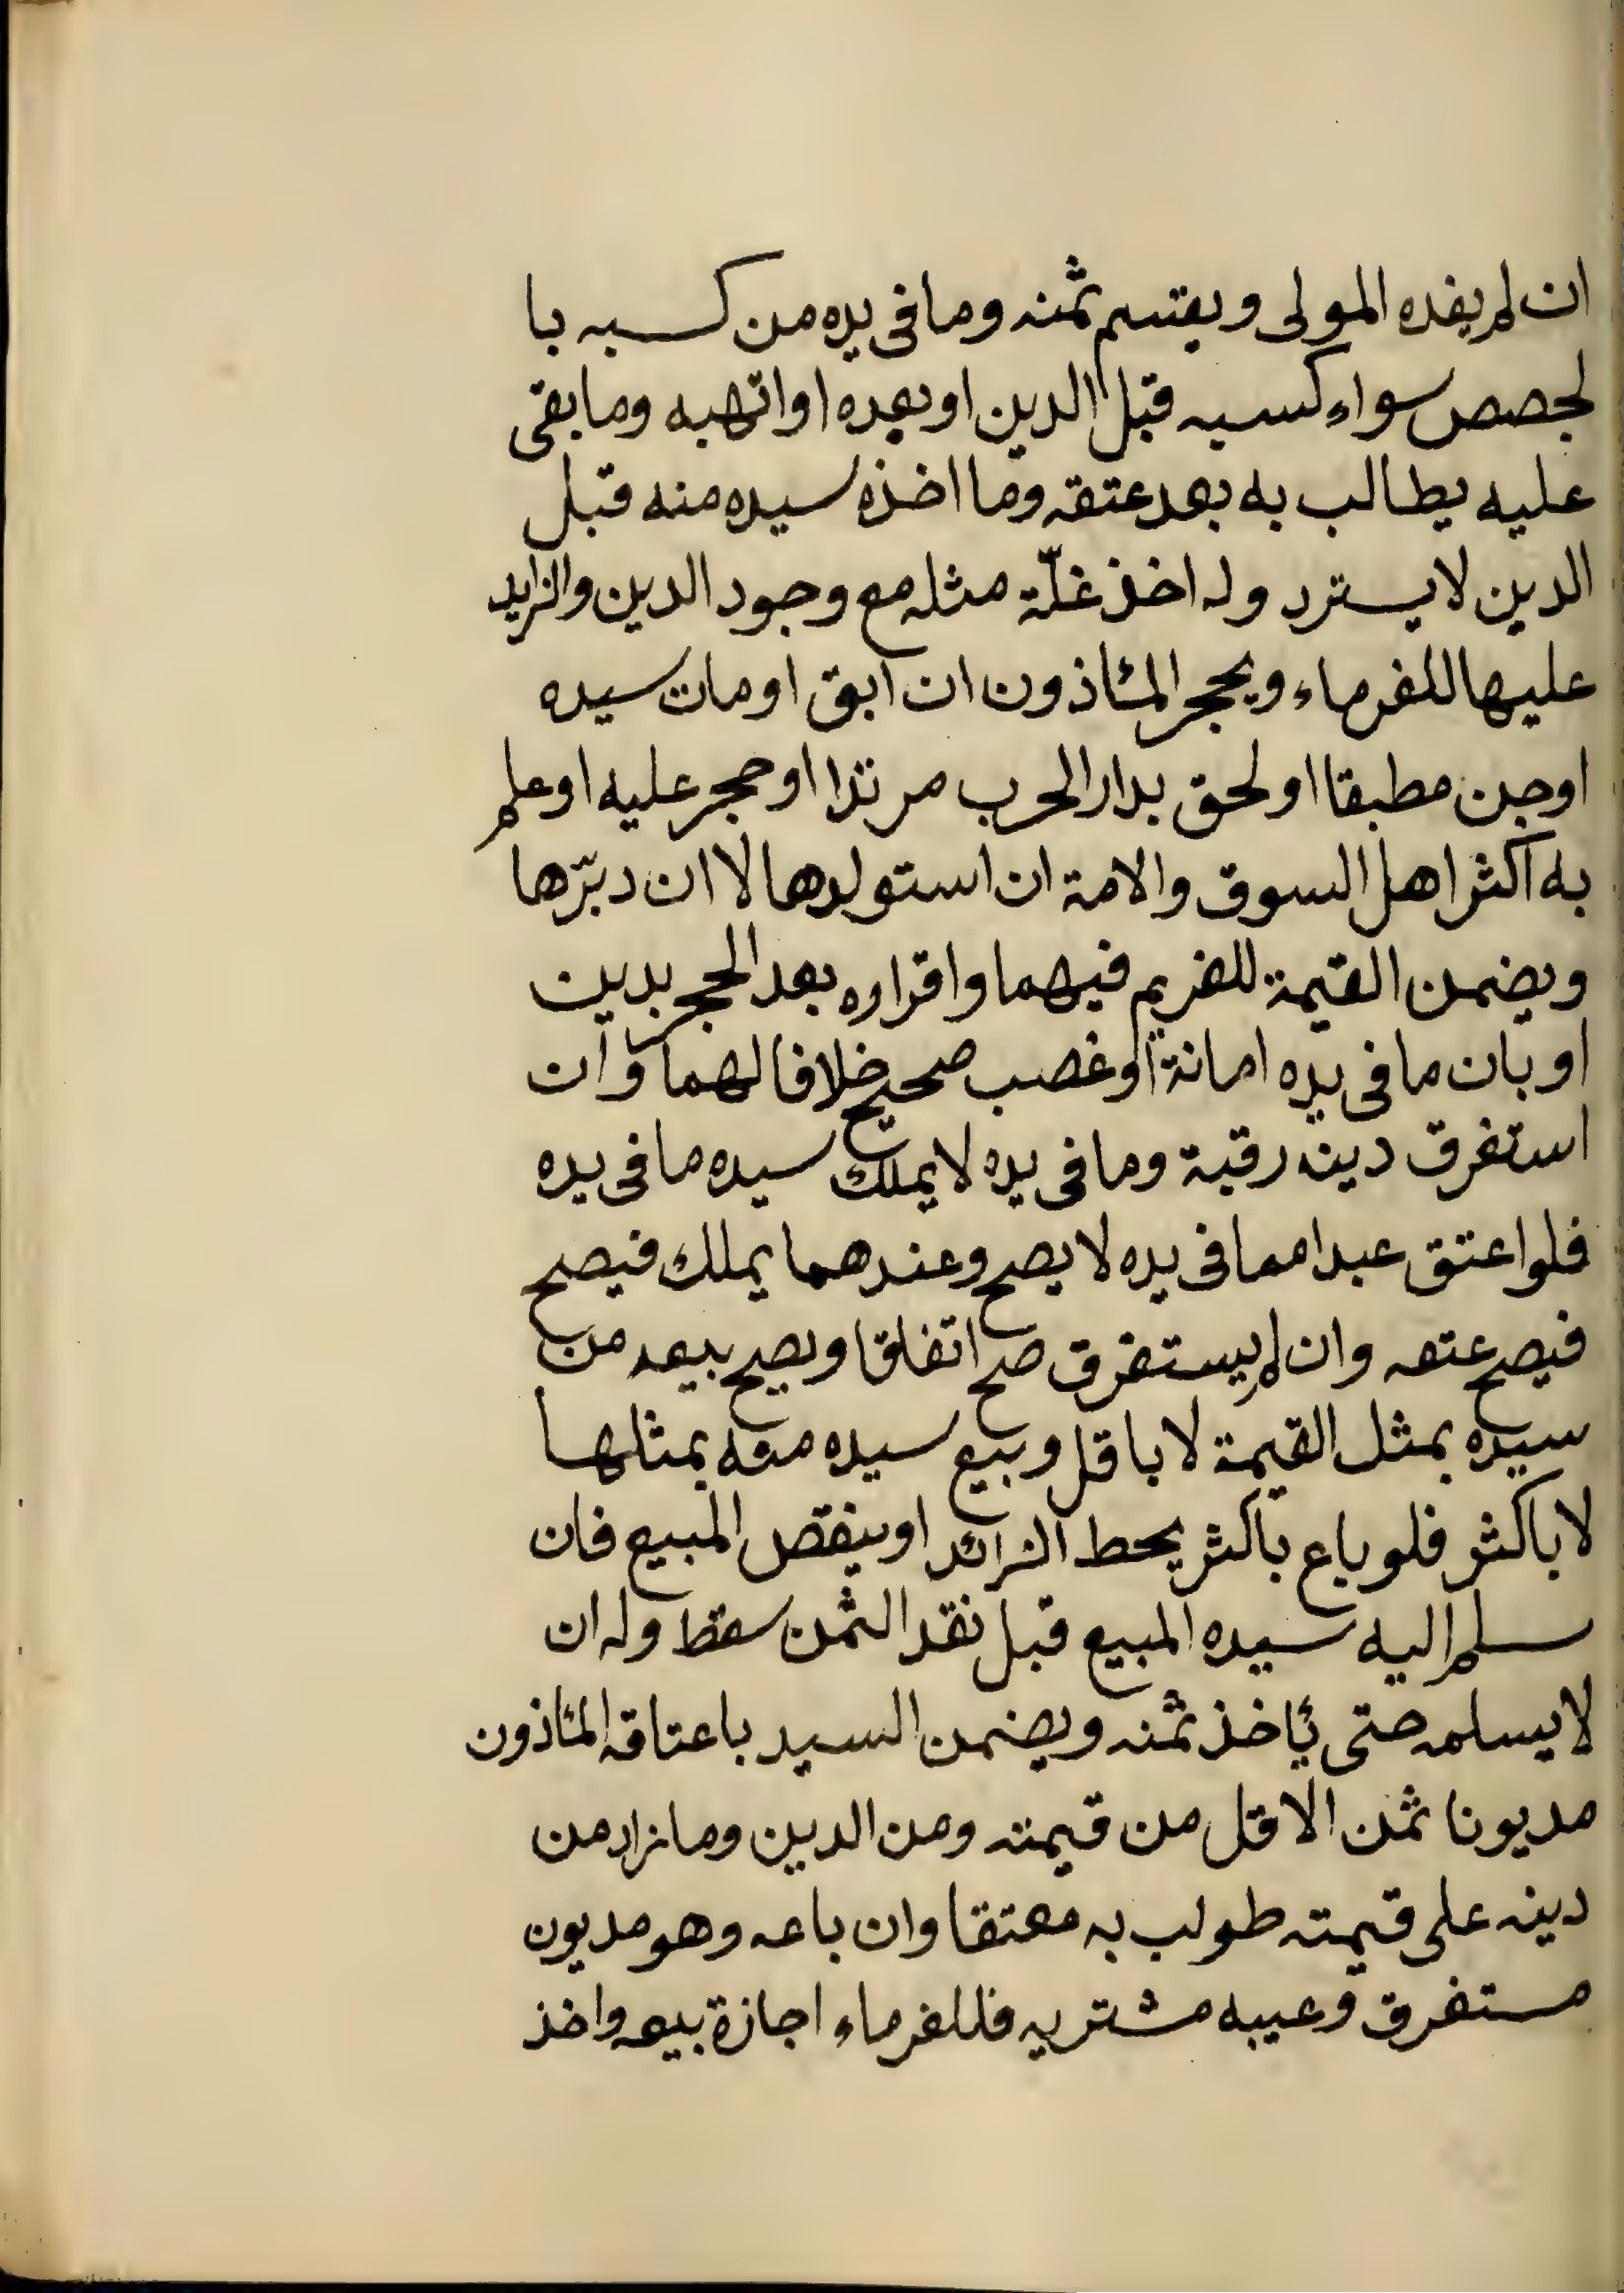 ان لم يفده المولى ويقتسم ثمنه وما فى يده من كسبه با
لحصص سواء كسبه قبل الدين او بعده او اتهبه وما بقى
عليه يطالب به بعد عتقه وما اخذه سيده منه قبل
الدين لا يسترد وله اخذ غلّة مثله مع وجود الدين والزايد
عليها للغرماء ويحجر المئاذون ان ابق او مات سيده
او جن مطبقا او لحق بدار الحرب مرتدا او حجر عليه او علم
به اكثر اهل السوق والامة ان استولدها لا ان دبّرها
ويضمن القيمة للغريم فيهما واقراره بعد الحجر بدين
او بان ما فى يده امانة او غصب صحيح خلافا لهما وان
استغرق دينه رقبة وما فى يده لا يملك سيده ما فى يده
فلو اعتق عبدا مما فى يده لا يصح وعندهما يملك فيصح
فيصح عتقه وان لم يستغرق صح اتفاقا ويصح بيعه من
سيده بمثل القيمة لا باقل وبيع سيده منه بمثلها
لا باكثر فلو باع باكثر يحط الزائد او ينقص المبيع فان
سلم اليه سيده المبيع قبل نقد الثمن سقط وله ان
لا يسلمه حتى يئاخذ ثمنه ويضمن السيد باعتاقه المئاذون
مديونا ثمن الاقل من قيمته ومن الدين وما زاد من
دينه على قيمته طولب به معتقا وان باعه وهو مديون
مستغرق وعيبه مشتريه فللغرماء اجازة بيعه واخذ